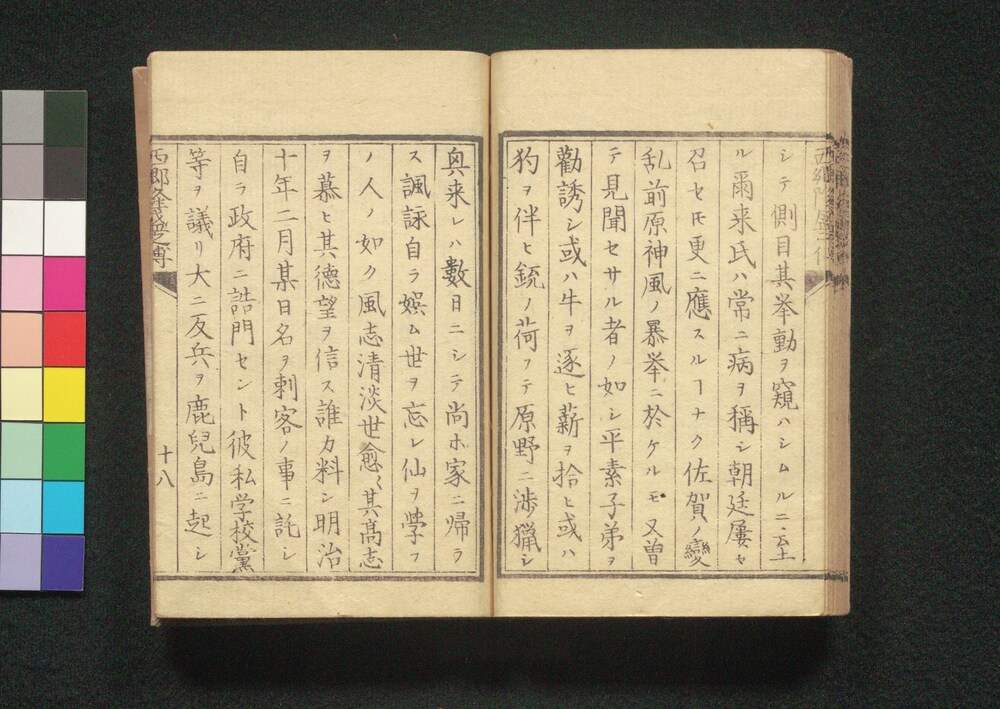 シテ側目其挙動ヲ窺ハシムルニ至
ル爾来氏ハ常ニ病ヲ稱シ朝廷屢セ
召セ𪜈更ニ應スルヿナク佐賀ノ變
乱前原神風ノ暴挙ニ於ケルモ又曽
テ見聞セサル者ノ如シ平素子弟ヲ
勸誘シ或ハ牛ヲ逐ヒ薪ヲ拾ヒ或ハ
犳ヲ伴ヒ銃ノ荷フテ原野ニ渉猟シ
奥来レハ數日ニシテ尚ホ家ニ帰ラ
ス諷詠自ラ娯ム世ヲ忘レ仙ヲ學フ
ノ人ノ如ク風志清淡世愈〻其髙志
ヲ慕ヒ其德望ヲ信ス誰カ料シ明治
十年二月某日名ヲ刺客ノ事ニ託シ
自ラ政府ニ詰門セント彼私学校黨
等ヲ議リ大ニ反兵ヲ鹿兒島ニ起シ
西郷隆盛之傳
十八